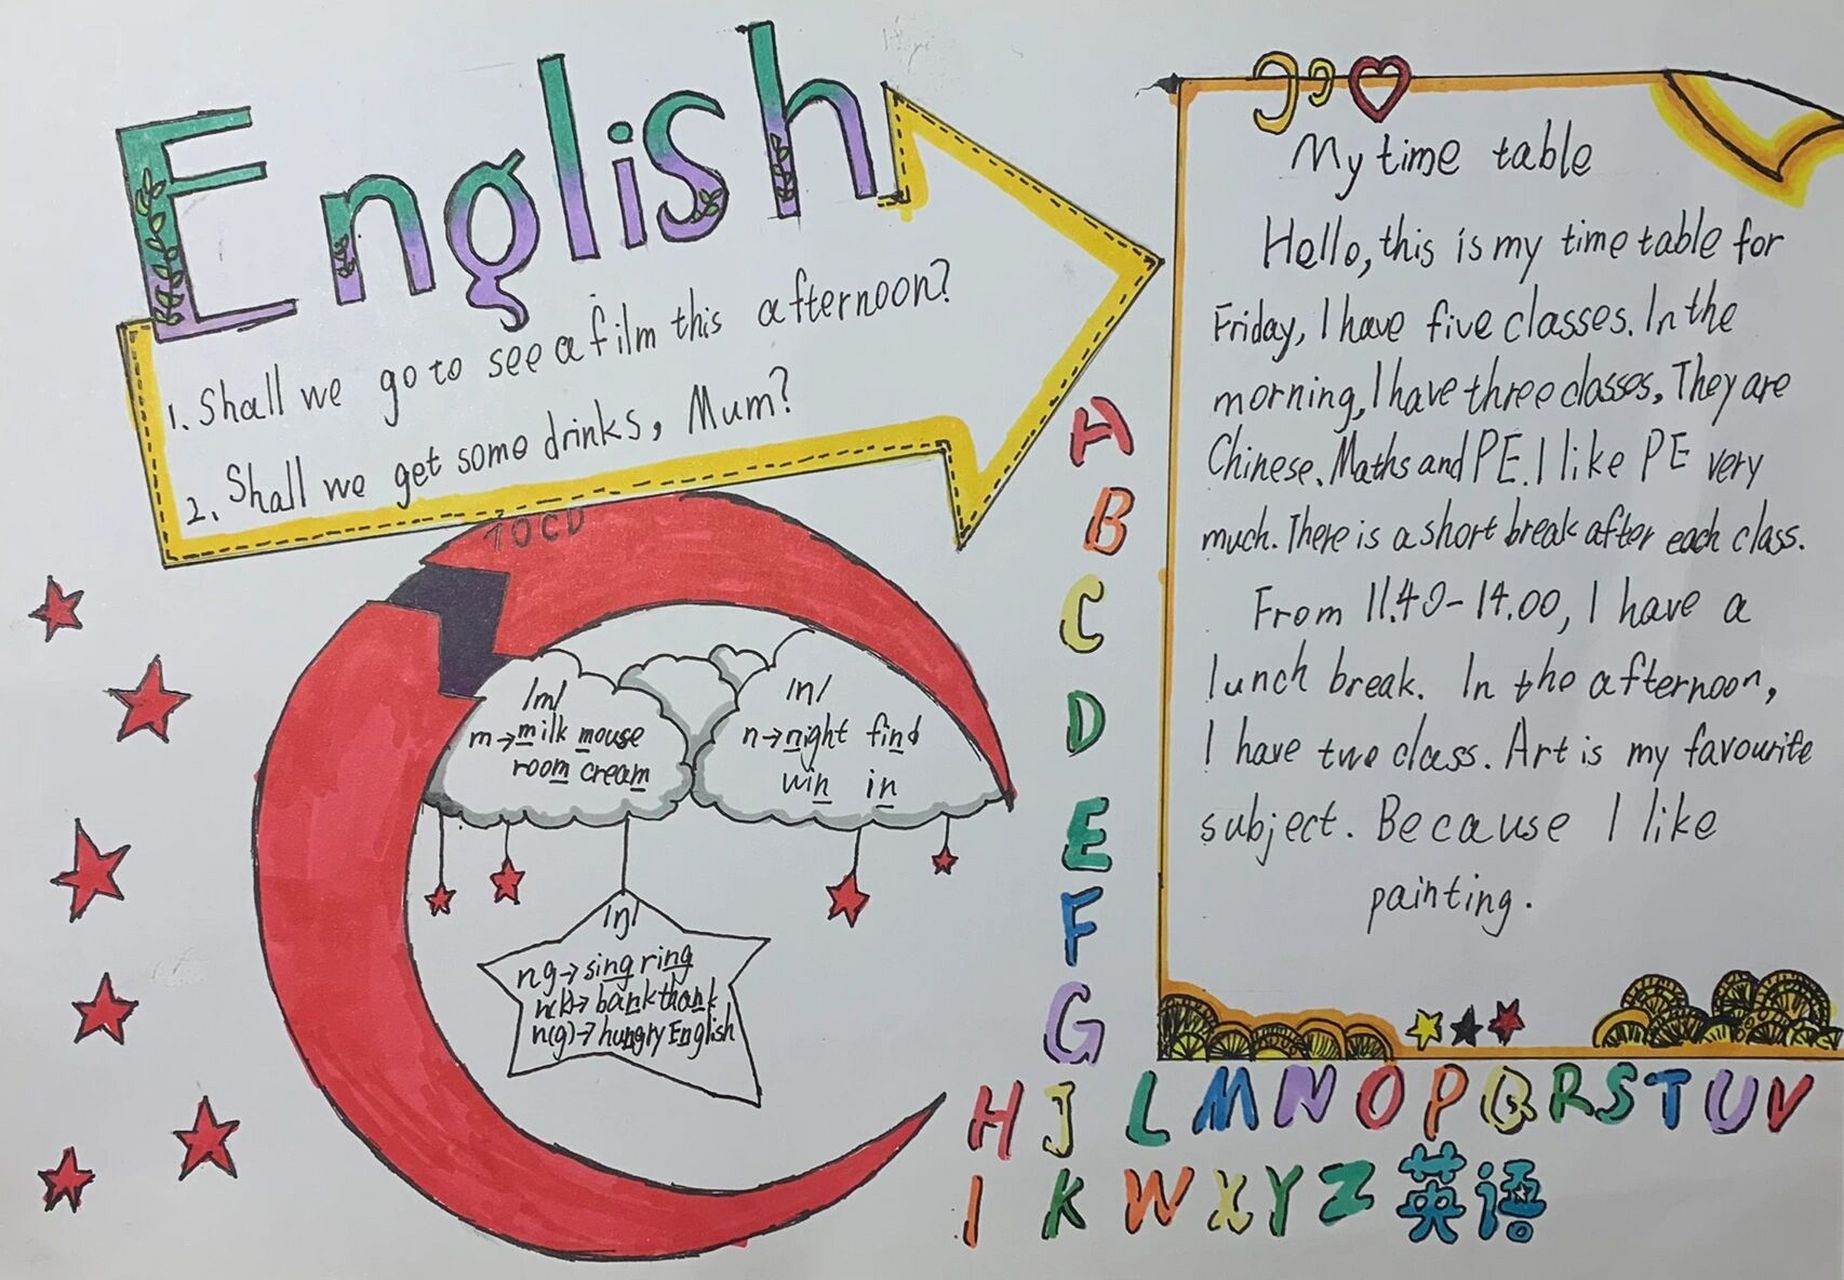 English
1. Shall we go to see a film this afternoon?
2. Shall we get some drinks, Mum?
My time table
Hello, this is my time table for
Friday, I have five classes. In the
morning, I have three classes, They are
Chinese. Maths and PE. I like PE very
much. There is a short break after each class.
From 11.40-14.00, I have a
lunch break. In the afternoon,
I have two class. Art is my favourite
subject. Because I like
painting.
/m/
m→milk mouse
room cream
/n/
n→night find
win in
/ŋ/
ng→sing ring
n(k)→bank thank
n(g)→hungry English
A
B
C
D
E
F
G
H J L M N O P Q R S T U V
I K W X Y Z 英语